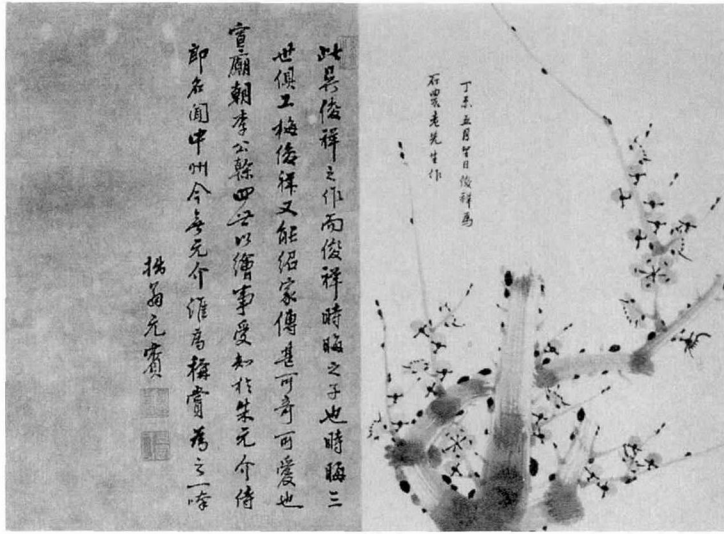 丁 五月 日俊祥爲
石農老先生作
此吳俊祥之作而俊祥時晦之子也時晦三
世俱工梅俊祥又能紹家傳甚可奇可愛也
宣廟朝李公 四世以繪事受知於朱元介侍
郎名聞中州今無元介誰爲稱賞爲之一唫
翁元賓